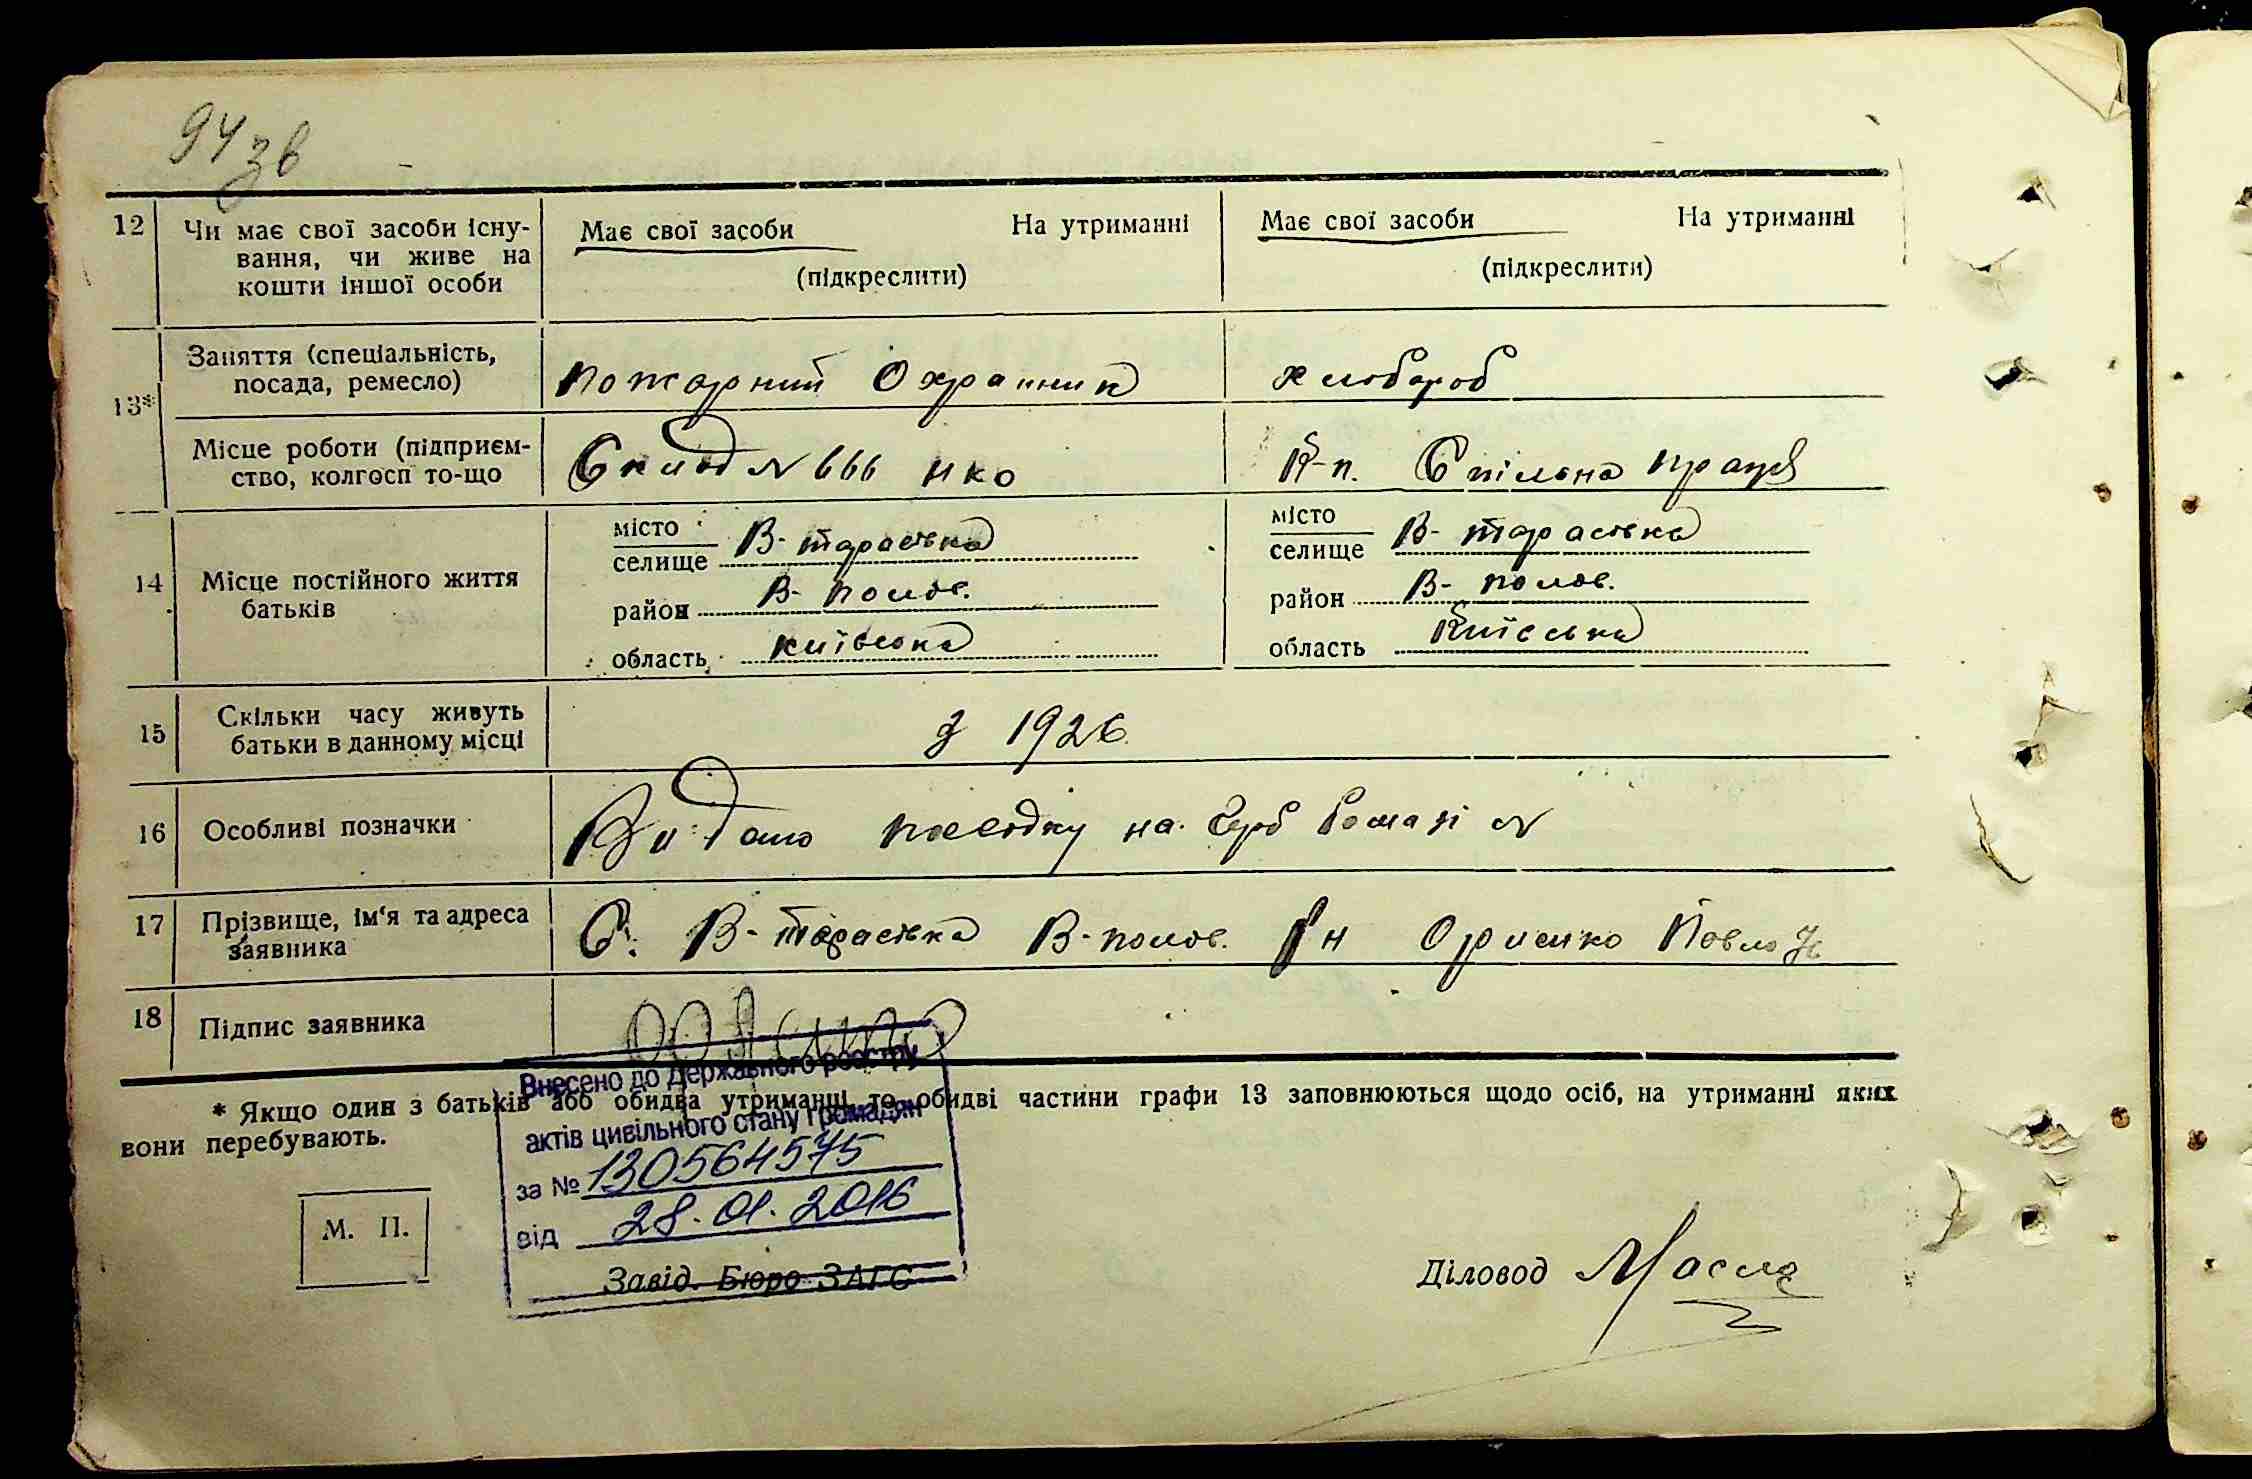 94 зв
12 Чи має свої засоби існу-
вання, чи живе на
кошти іншої особи
Має свої засоби На утриманні
(підкреслити)
Має свої засоби На утриманні
(підкреслити)
13*
Заняття (спеціальність,
посада, ремесло)
Пожарний Охранник
хлібороб
Місце роботи (підприєм-
ство, колгосп то-що
Склад № 666 НКО
К-п. Спільна праця
14 Місце постійного життя
батьків
місто
селище В-Тарасівка
район В-Полов.
область Київська
місто
селище В-Тарасівка
район В-Полов.
область Київська
15 Скільки часу живуть
батьки в данному місці
з 1926
16 Особливі позначки
Видано на №
17 Прізвище, ім'я та адреса
заявника
С. В-Тарасівка В-Полов. Рн Павло
18 Підпис заявника
* Якщо один з батьків або обидва утриманці, то обидві частини графи 13 заповнюються щодо осіб, на утриманні яких
вони перебувають.
Внесено до Державного реєстру
актів цивільного стану громадян
за № 130564575
від 28.01.2016
М. П.
Завід. Бюро ЗАГС
Діловод